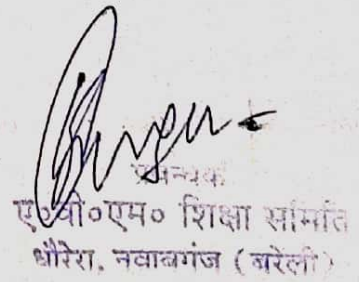 प्रबन्धक
ए०वी०एम० शिक्षा समिति
धौरेरा, नवाबगंज (बरेली)